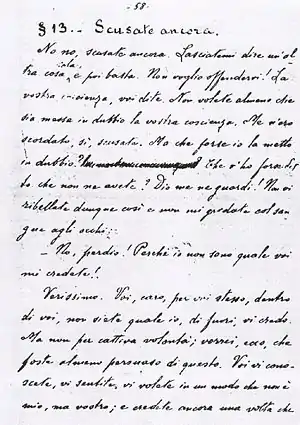 - 58 -
§ 13. - Scusate ancora.
No no, scusate ancora. Lasciatemi dire un'al
tra cosa sola e poi basta. Non voglio offendervi! La
vostra coscienza, voi dite. Non volete almeno che
sia messa in dubbio la vostra coscienza. Me n'ero
scordato, sì, scusate. Ma che forse io la metto
in dubbio? Che v'ho forse det
to che non ne avete? Dio me ne guardi! Non vi
ribellate dunque così e non mi gridate col san
gue agli occhi:
- No, perdio! Perché io non sono quale voi
mi credete!
Verissimo. Voi, caro, per voi stesso, dentro
di voi, non siete quale io, di fuori, vi credo.
Ma non per cattiva volontà; vorrei, ecco, che
foste almeno persuaso di questo. Voi vi cono-
scete, vi sentite, vi volete in un modo che non è
mio, ma vostro; e credete ancora una volta che